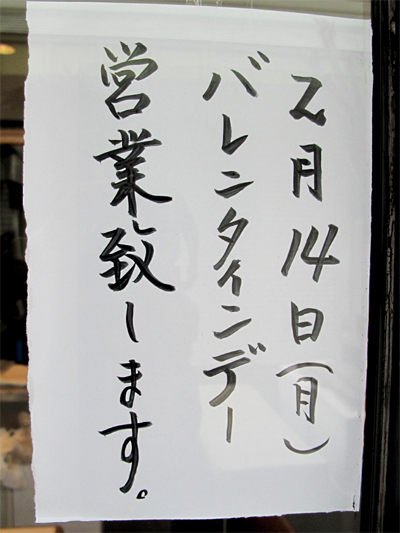 2月14日(月)
バレンタインデー
営業致します。